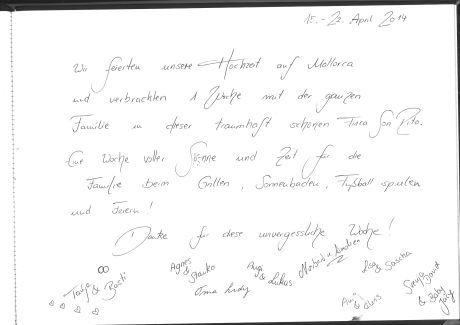 15. - 22. April 2014
Wir feierten unsere Hochzeit auf Mallorca
und verbrachten 1 Woche mit der ganzen
Familie in dieser traumhaft schönen Finca Son Rito.
Eine Woche voller Sonne und Zeit für die
Familie beim Grillen, Sonnenbaden, Fußball spielen
und Feiern!
Danke für diese unvergessliche Woche!
Agnes & Lukas & Sascha
Oma
& Basti
& Chris
& Baby